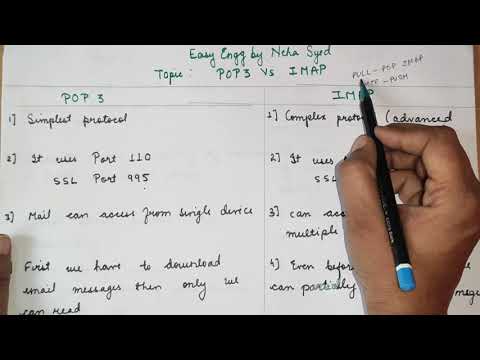 Easy Engg by Neha Syed
Topic: POP3 Vs IMAP
PULL - POP IMAP
- PUSH
POP 3
1] Simplest protocol
2] It uses Port 110
SSL Port 995
3] Mail can access from single device
First we have to download
email messages then only we
can read
IMAP
1] Complex (advanced
2] It uses
SSL
3] can
multiple
4] Even
can partially